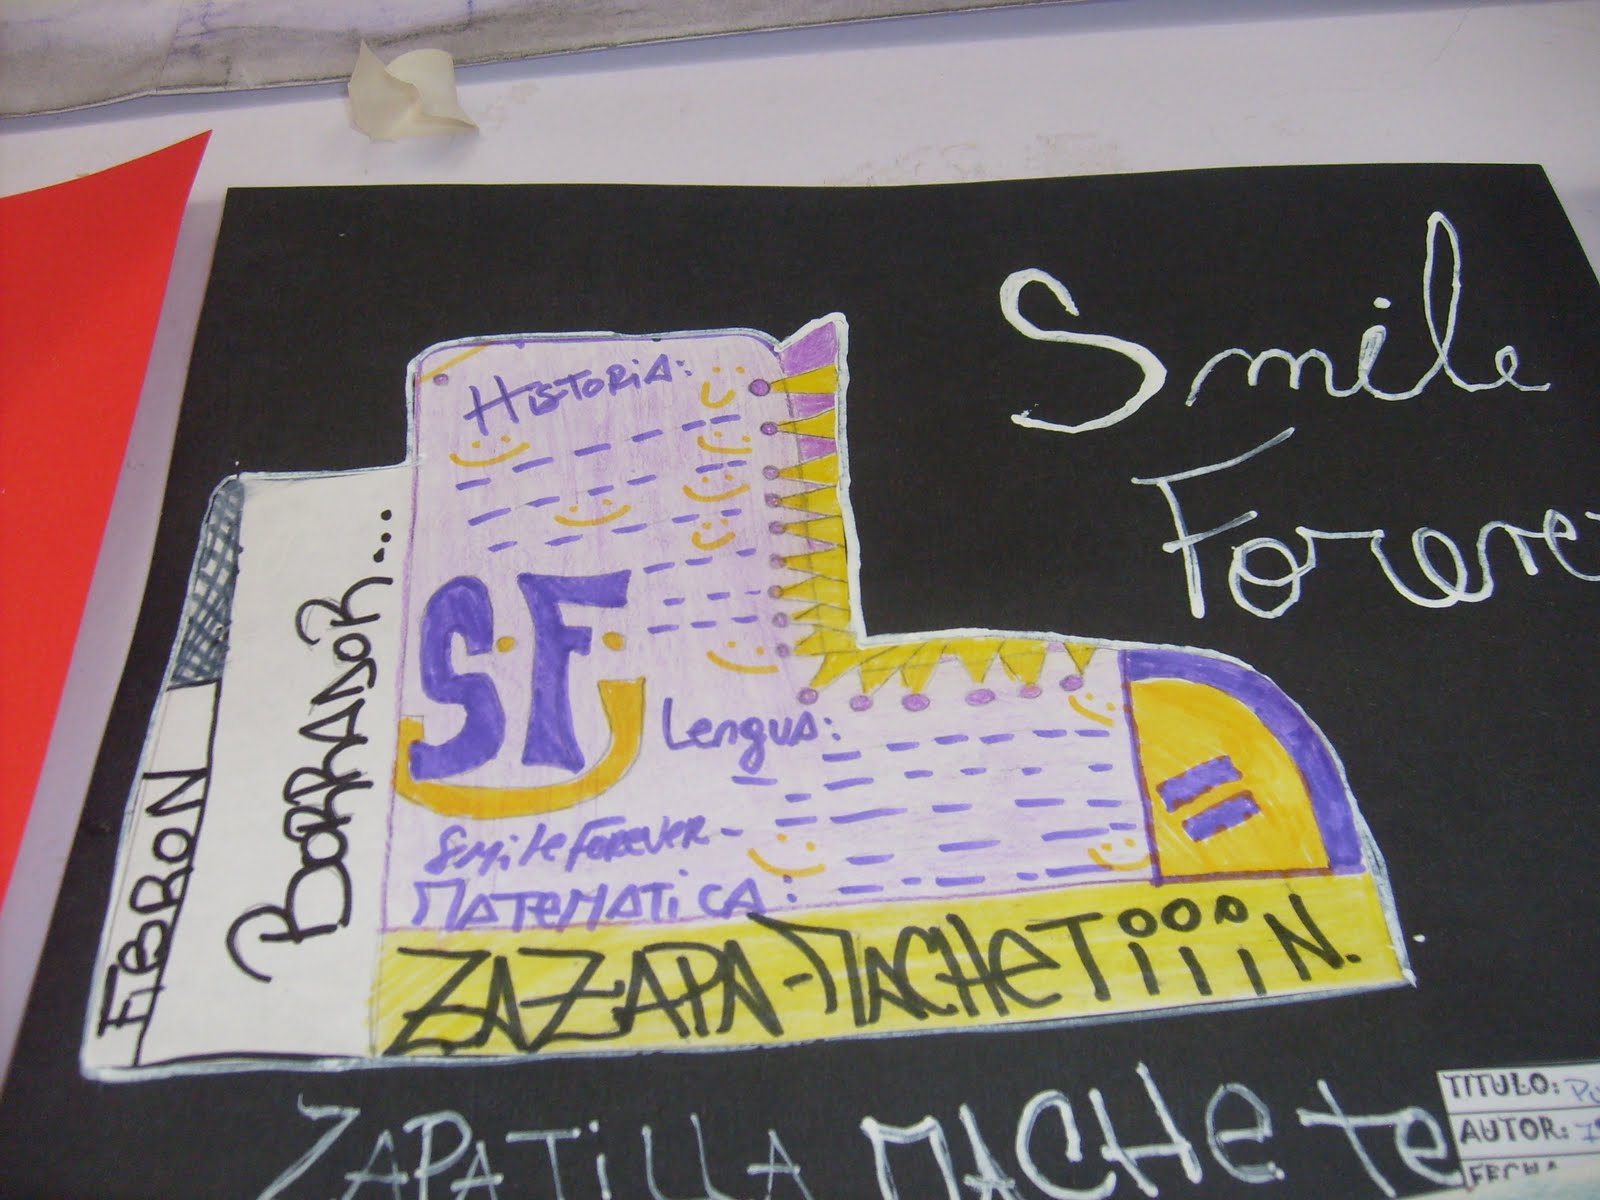 Smile
Forever
HISTORIA:
S.F.
Lengua:
Smile Forever
MATEMATICA:
BORRADOR...
FIBRON
ZAZAPA-MACHETiiiiN.
ZAPATiLLA MACHETE
TITULO:
AUTOR:
FECHA